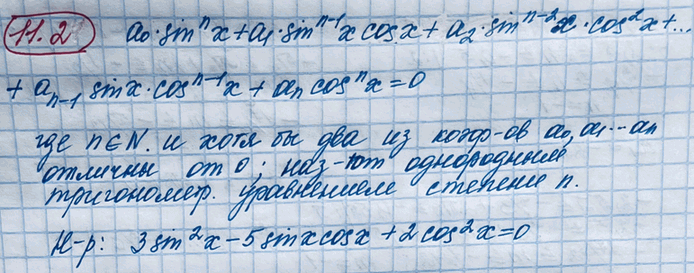 11.2 a₀·sinⁿx+a₁·sinⁿ⁻¹x cosx+a₂·sinⁿ⁻²x·cos²x+...
+aₙ₋₁ sinx·cosⁿ⁻¹x+aₙcosⁿx=0
где n∈N. и хотя бы два из коэф-ов a₀,a₁...aₙ
отличны от 0; наз-ют однородным
тригонометр. уравнением степени n.
Н-р: 3sin²x-5sinxcosx+2cos²x=0